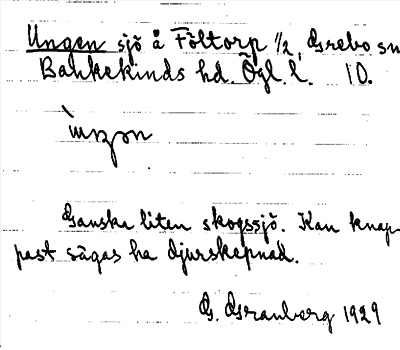 Ungen sjö å Föltorp 1/2, Grebo sn
Bankekinds hd. Ögl. l. 10.
Ganska liten skogssjö. Kan knap-
past sägas ha djurskepnad.
G. Granberg 1929